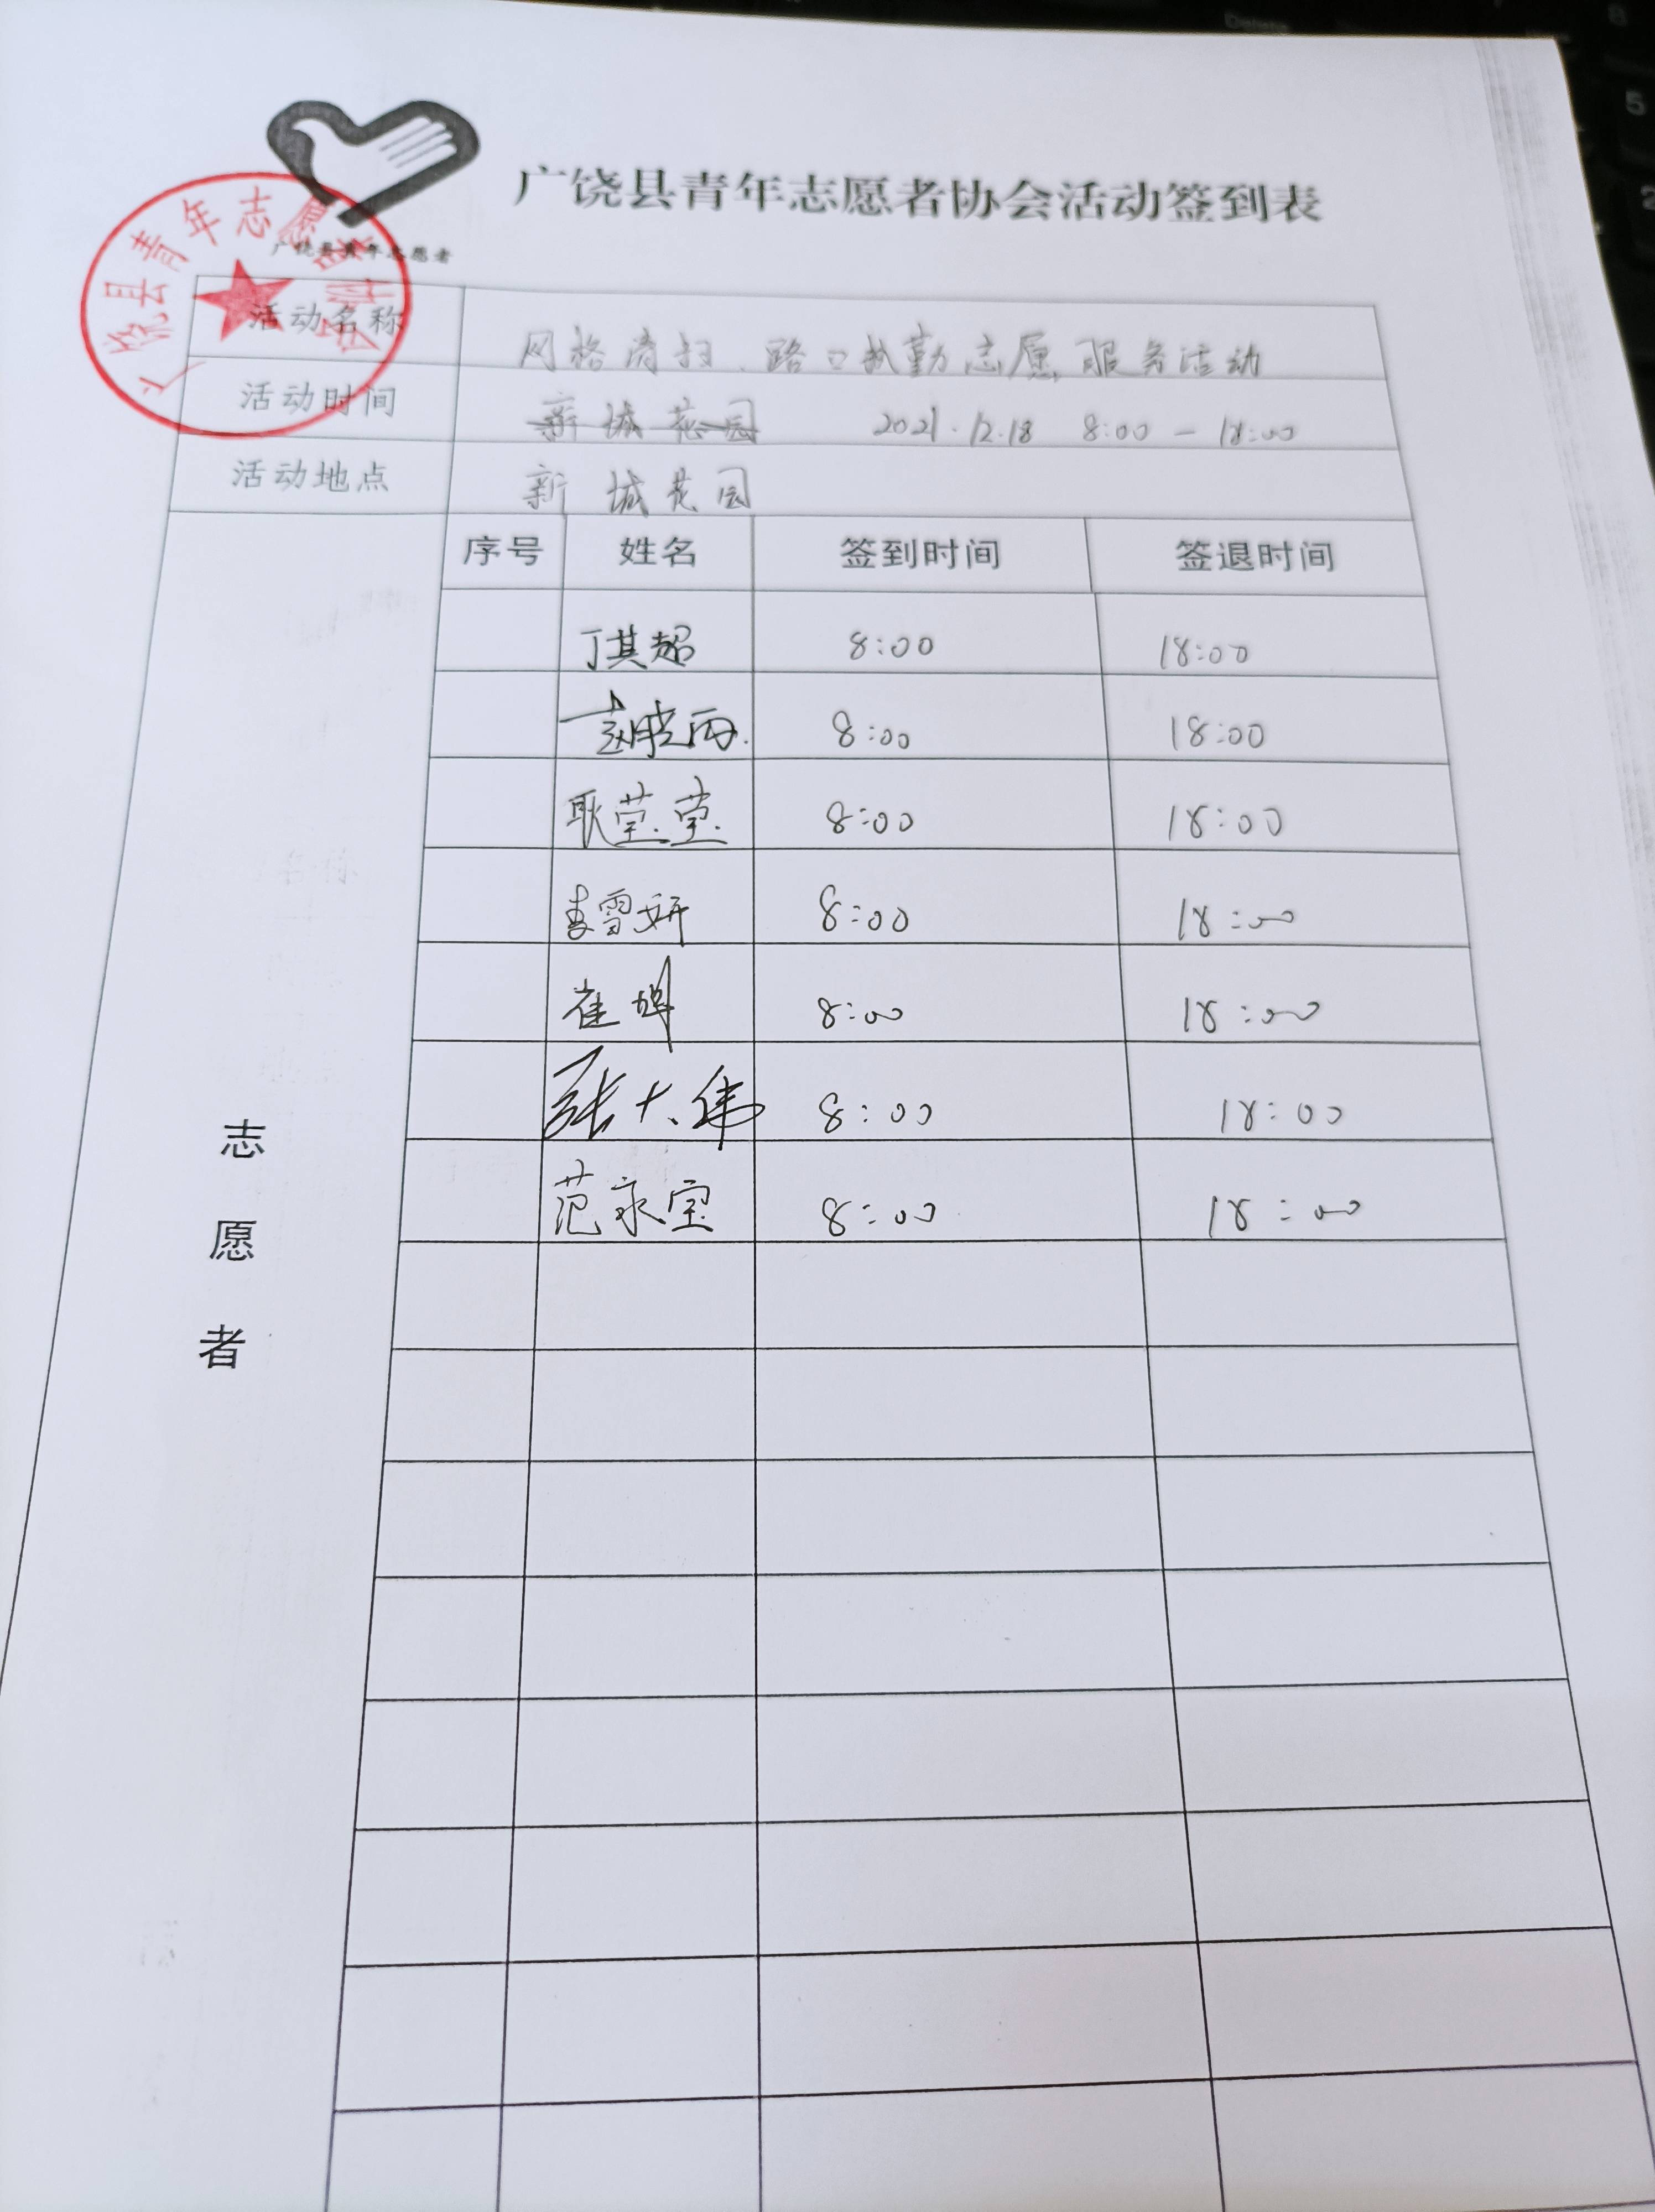 广饶县青年志愿者协会活动签到表
广饶县青年志愿者协会
广饶县青年志愿者
活动名称 网格清扫、路口执勤志愿服务活动
活动时间 新城花园 2021.12.18 8:00-18:00
活动地点 新城花园
序号 姓名 签到时间 签退时间
丁其超 8:00 18:00
8:00 18:00
耿莹莹 8:00 18:00
李雪妍 8:00 18:00
崔 8:00 18:00
张大伟 8:00 18:00
范永宝 8:00 18:00
志
愿
者
Delete
5
2